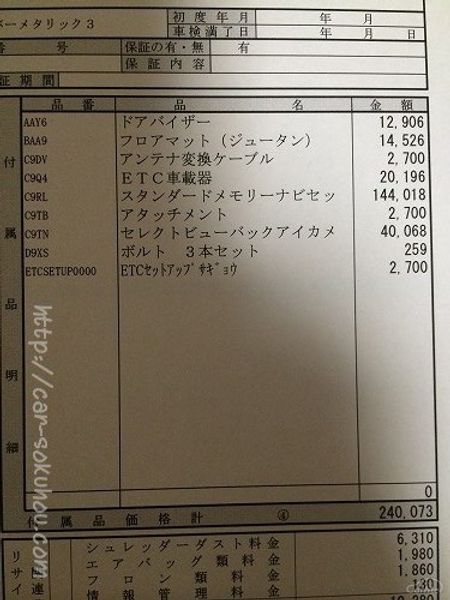 バーメタリック3
初度年月 年 月
車検満了日 年 月 日
番 号 保証の有・無 有
保証内容
証期間
品番 品名 金額
AAY6 ドアバイザー 12,906
BAA9 フロアマット（ジュータン） 14,526
C9DV アンテナ変換ケーブル 2,700
C9Q4 ETC車載器 20,196
C9RL スタンダードメモリーナビセッ 144,018
C9TB アタッチメント 2,700
C9TN セレクトビューバックアイカメ 40,068
D9XS ボルト 3本セット 259
ETCSETUP0000 ETCｾｯﾄｱｯﾌﾟｻｷﾞｮｳ 2,700
付属品明細
0
付属品価格計 ④ 240,073
シュレッダーダスト料金 6,310
エアバッグ類料金 1,980
フロン類料金 1,860
情報管理料金 130
リサイ
http://car-sokuhou.com